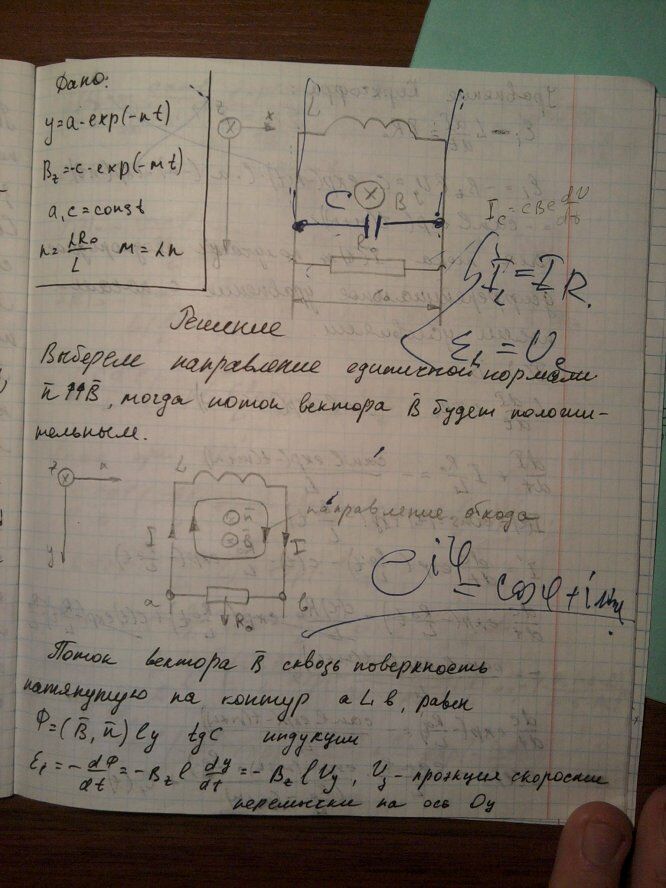 Дано:
y=a·exp(-nt)
B_z=-c·exp(-mt)
a, c = const
n=LR₀/L m=Ln
z
x
L
C
B
R₀
l
I_c=CBe dU/dt
I_L=I_R.
ε_i=U
Решение
Выберем направление единичной нормали
n̄⇈B̄, тогда поток вектора B̄ будет положи-
тельным.
z
x
y
L
I
n̄
B̄
I
направление обхода
a
в
R₀
e^{iφ}=cosφ+i sinφ
Поток вектора B̄ сквозь поверхность
натянутую на контур aLв, равен
Φ=(B̄, n̄)ly индукции
ε_i=-dΦ/dt=-B_z l dy/dt=-B_z l V_y, V_y - проэкция скорости
перемычки на ось Oy